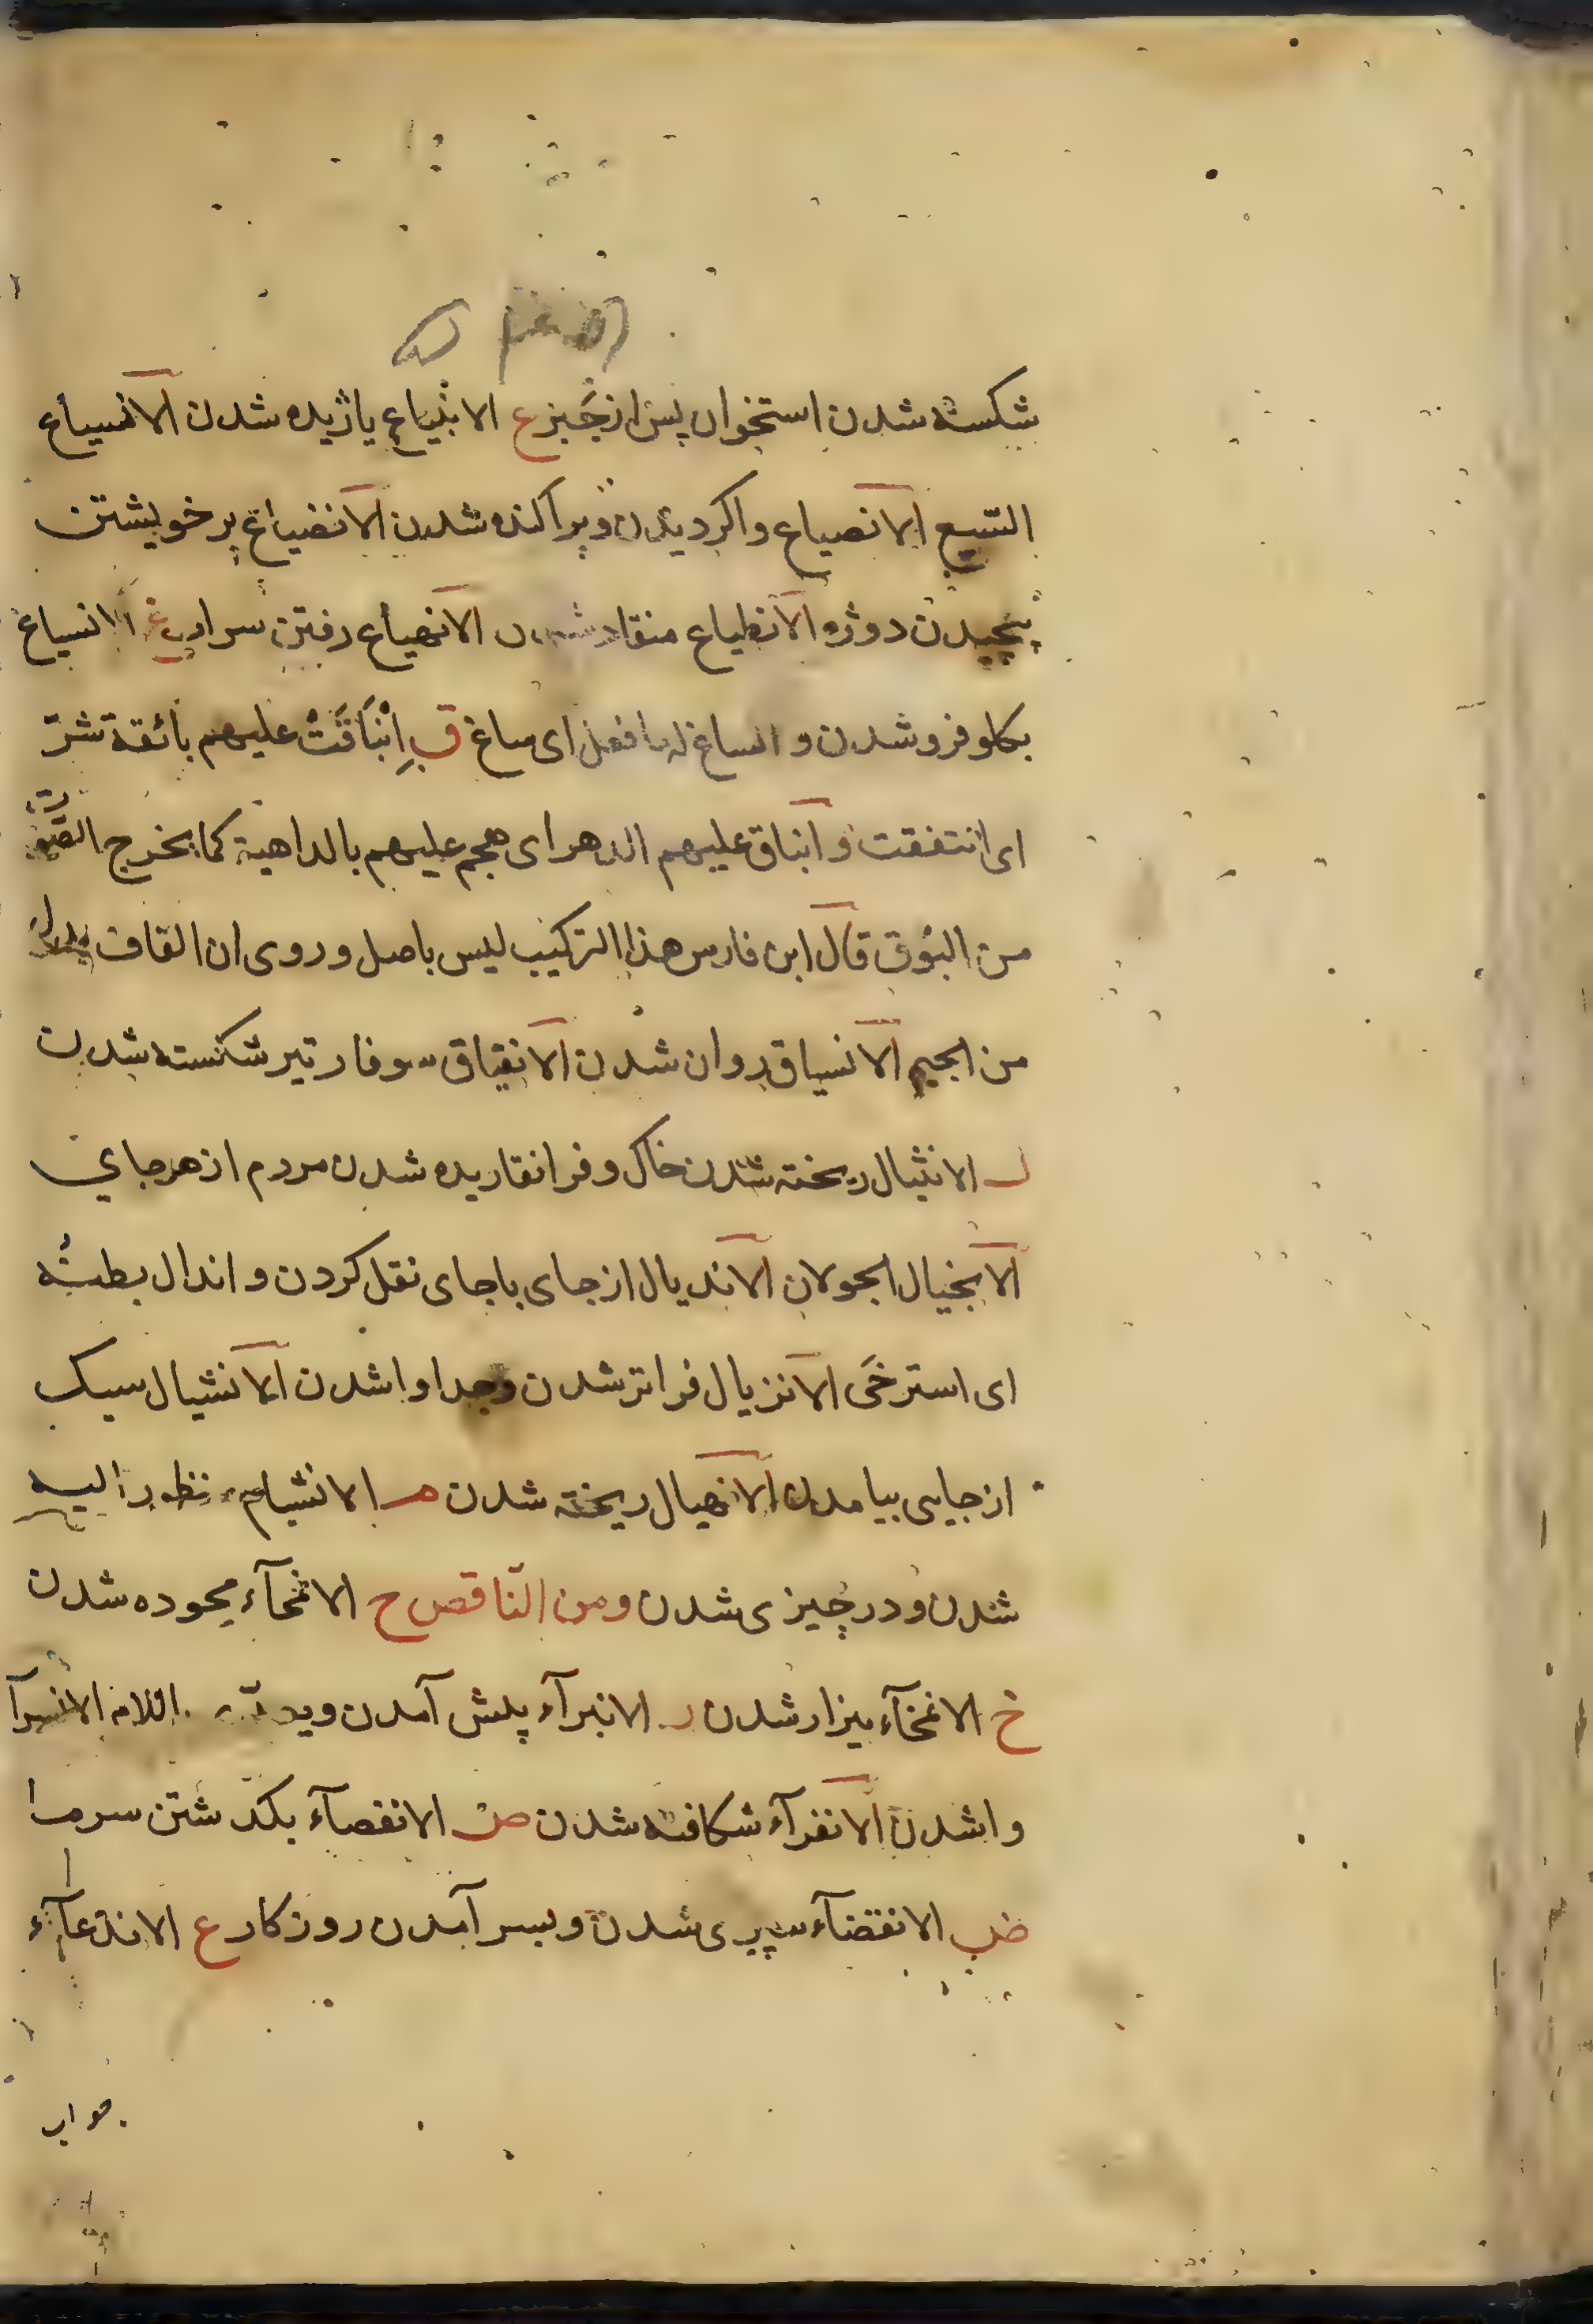 شکسته شدن استخوان پس از جبر ع الانبیاع یازیده شدن الانسیاع
التسیع الانصیاع واکردیدن وپراکنده شدن الانضیاع بر خویشتن
پیچیدن دوژه الانطیاع منقاد شدن الانهیاع رفتن سراب غ الانسیاغ
بکلو فرو شدن و انساغ له ما فعل ای ساغ ق اِنْبَاقَتْ علیهم بائقة شرّ
ای انتفقت و انباق علیهم الدهر ای هجم علیهم بالداهیة کما یخرج الصوت
من البُوق قال ابن فارس هذا الترکیب لیس باصل وروی ان القاف
من الجیم الانسیاق روان شدن الانقیاق سوفار تیر شکسته شدن
ل الانثیال ریخته شدن خاک و فرا نقاریده شدن مردم از هر جای
الانجیال الجولان الاندیال از جای باجای نقل کردن و اندال بطنُه
ای استرخَی الانزیال فراتر شدن وجدا واشدن الانشیال سبک
از جایی بیامدن الانهیال ریخته شدن م الانشیام نظر الیه
شدن و در چیزی شدن ومن النّاقص ح الانمحآء محوده شدن
خ الانمخآء بیزار شدن ر الانبرآء پیش آمدن اللام الانسرآ
واشدن الانفرآء شکافته شدن ص الانفصآء بکذشتن سرما
ض الانقضآء سپری شدن و بسر آمدن روزکار ع الاندعآء